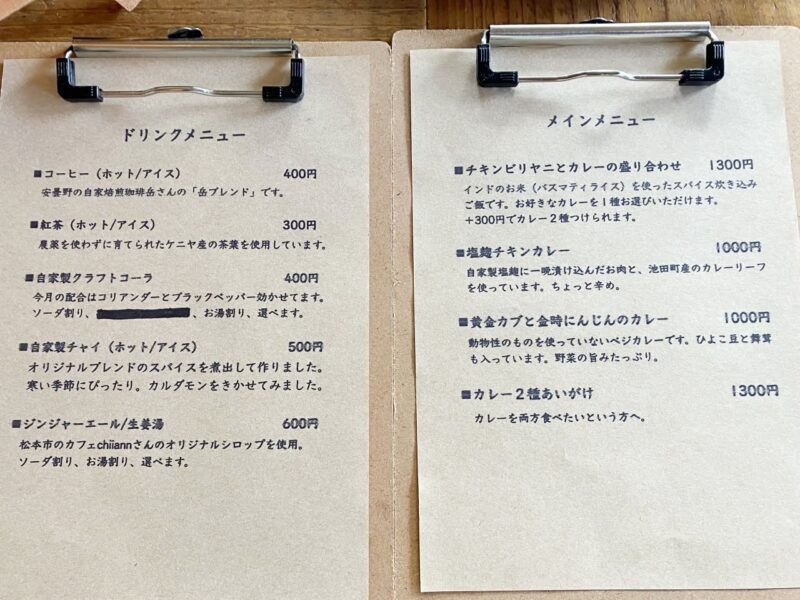 ドリンクメニュー
■コーヒー（ホット/アイス） 400円
安曇野の自家焙煎珈琲岳さんの「岳ブレンド」です。
■紅茶（ホット/アイス） 300円
農薬を使わずに育てられたケニヤ産の茶葉を使用しています。
■自家製クラフトコーラ 400円
今月の配合はコリアンダーとブラックペッパー効かせてます。
ソーダ割り、 、お湯割り、選べます。
■自家製チャイ（ホット/アイス） 500円
オリジナルブレンドのスパイスを煮出して作りました。
寒い季節にぴったり。カルダモンをきかせてみました。
■ジンジャーエール/生姜湯 600円
松本市のカフェchiiannさんのオリジナルシロップを使用。
ソーダ割り、お湯割り、選べます。
メインメニュー
■チキンビリヤニとカレーの盛り合わせ 1300円
インドのお米（バスマティライス）を使ったスパイス炊き込み
ご飯です。お好きなカレーを１種お選びいただけます。
＋300円でカレー２種つけられます。
■塩麹チキンカレー 1000円
自家製塩麹に一晩漬け込んだお肉と、池田町産のカレーリーフ
を使っています。ちょっと辛め。
■黄金カブと金時にんじんのカレー 1000円
動物性のものを使っていないベジカレーです。ひよこ豆と舞茸
も入っています。野菜の旨みたっぷり。
■カレー２種あいがけ 1300円
カレーを両方食べたいという方へ。